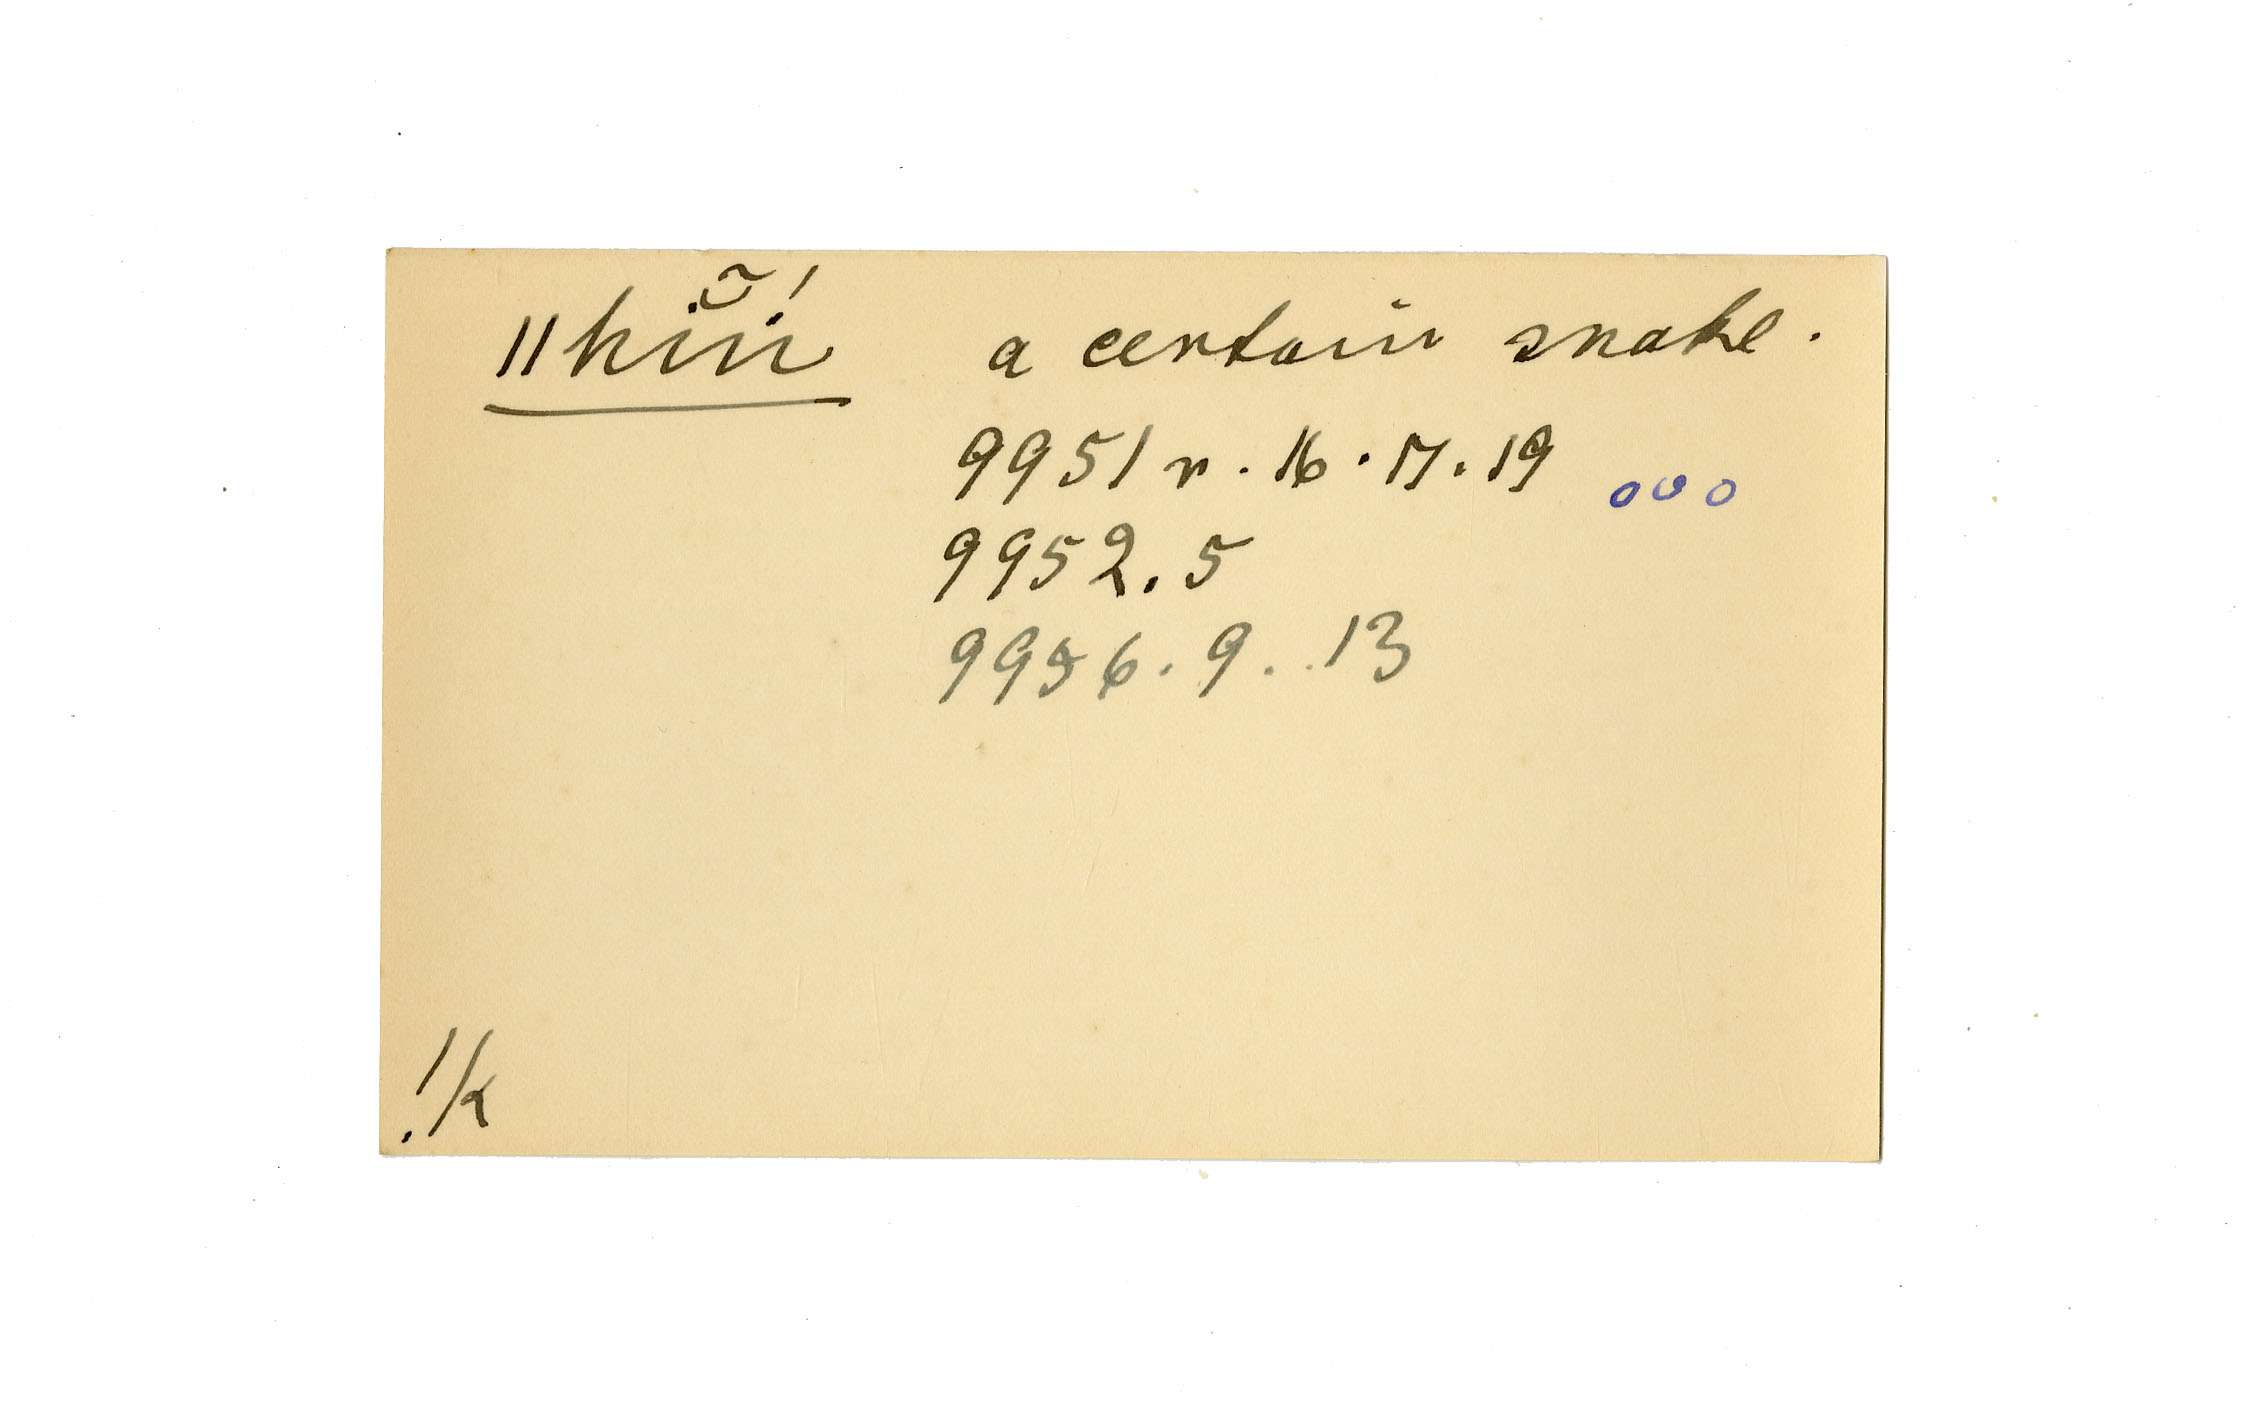 ǁhĭ̃ń a certain snake.
9951 r. 16. 17. 19 ooo
9952. 5
9956. 9. . 13
!k